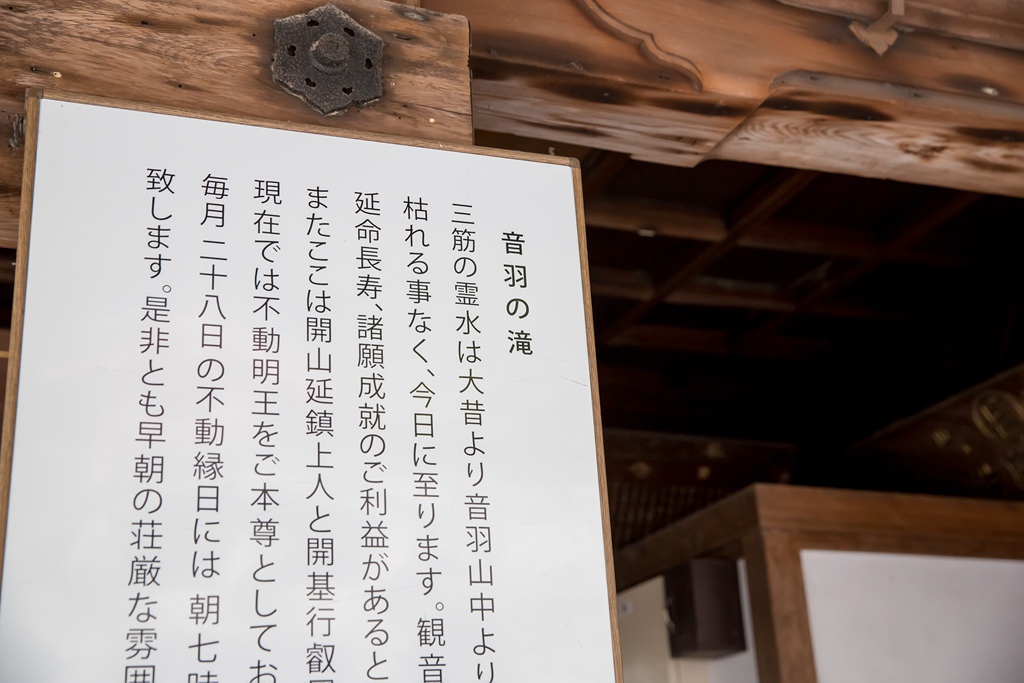 音羽の滝
三筋の霊水は大昔より音羽山中より
枯れる事なく、今日に至ります。観音
延命長寿、諸願成就のご利益があると
またここは開山延鎮上人と開基行叡
現在では不動明王をご本尊としてお
毎月二十八日の不動縁日には朝七時
致します。是非とも早朝の荘厳な雰囲